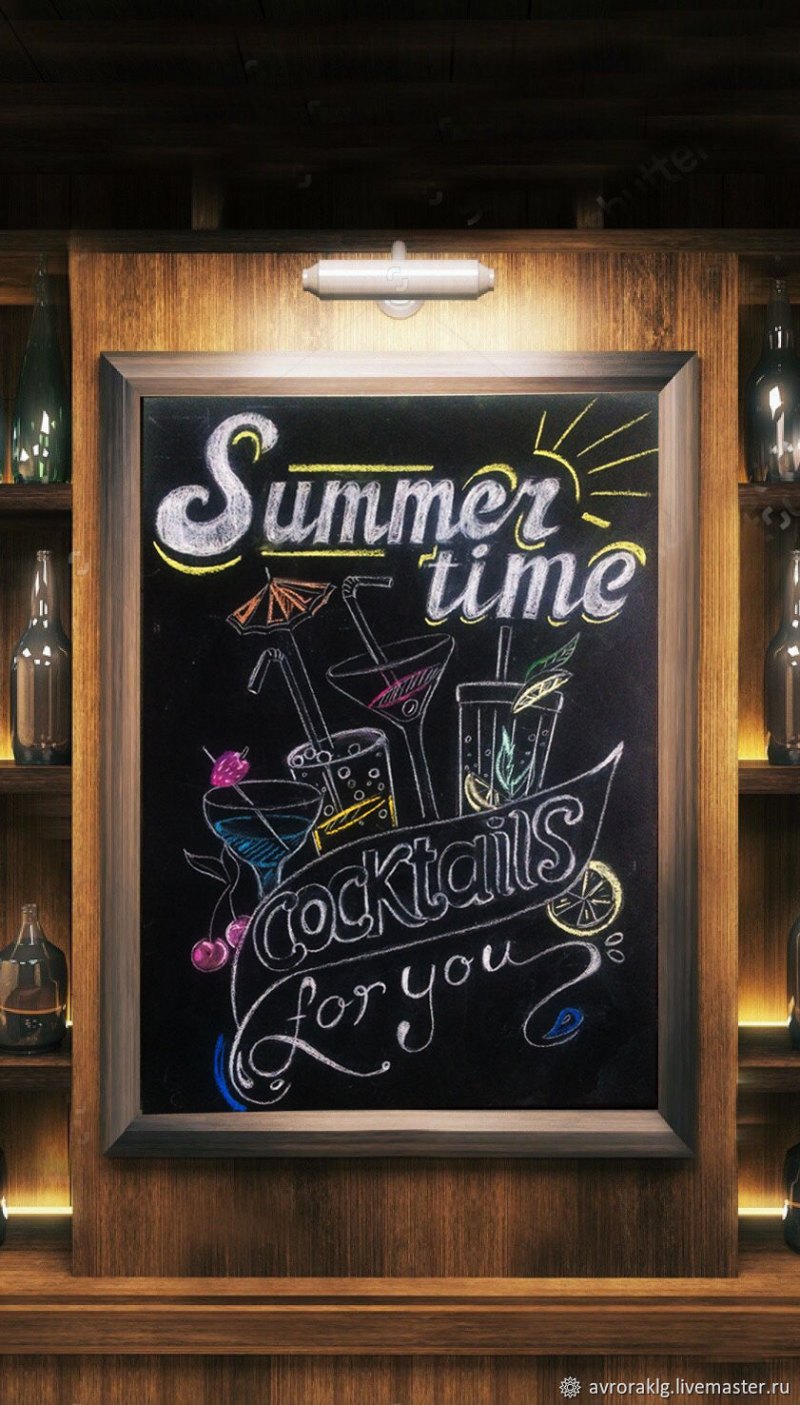 Summer
time
cocktails
for you
avroraklg.livemaster.ru